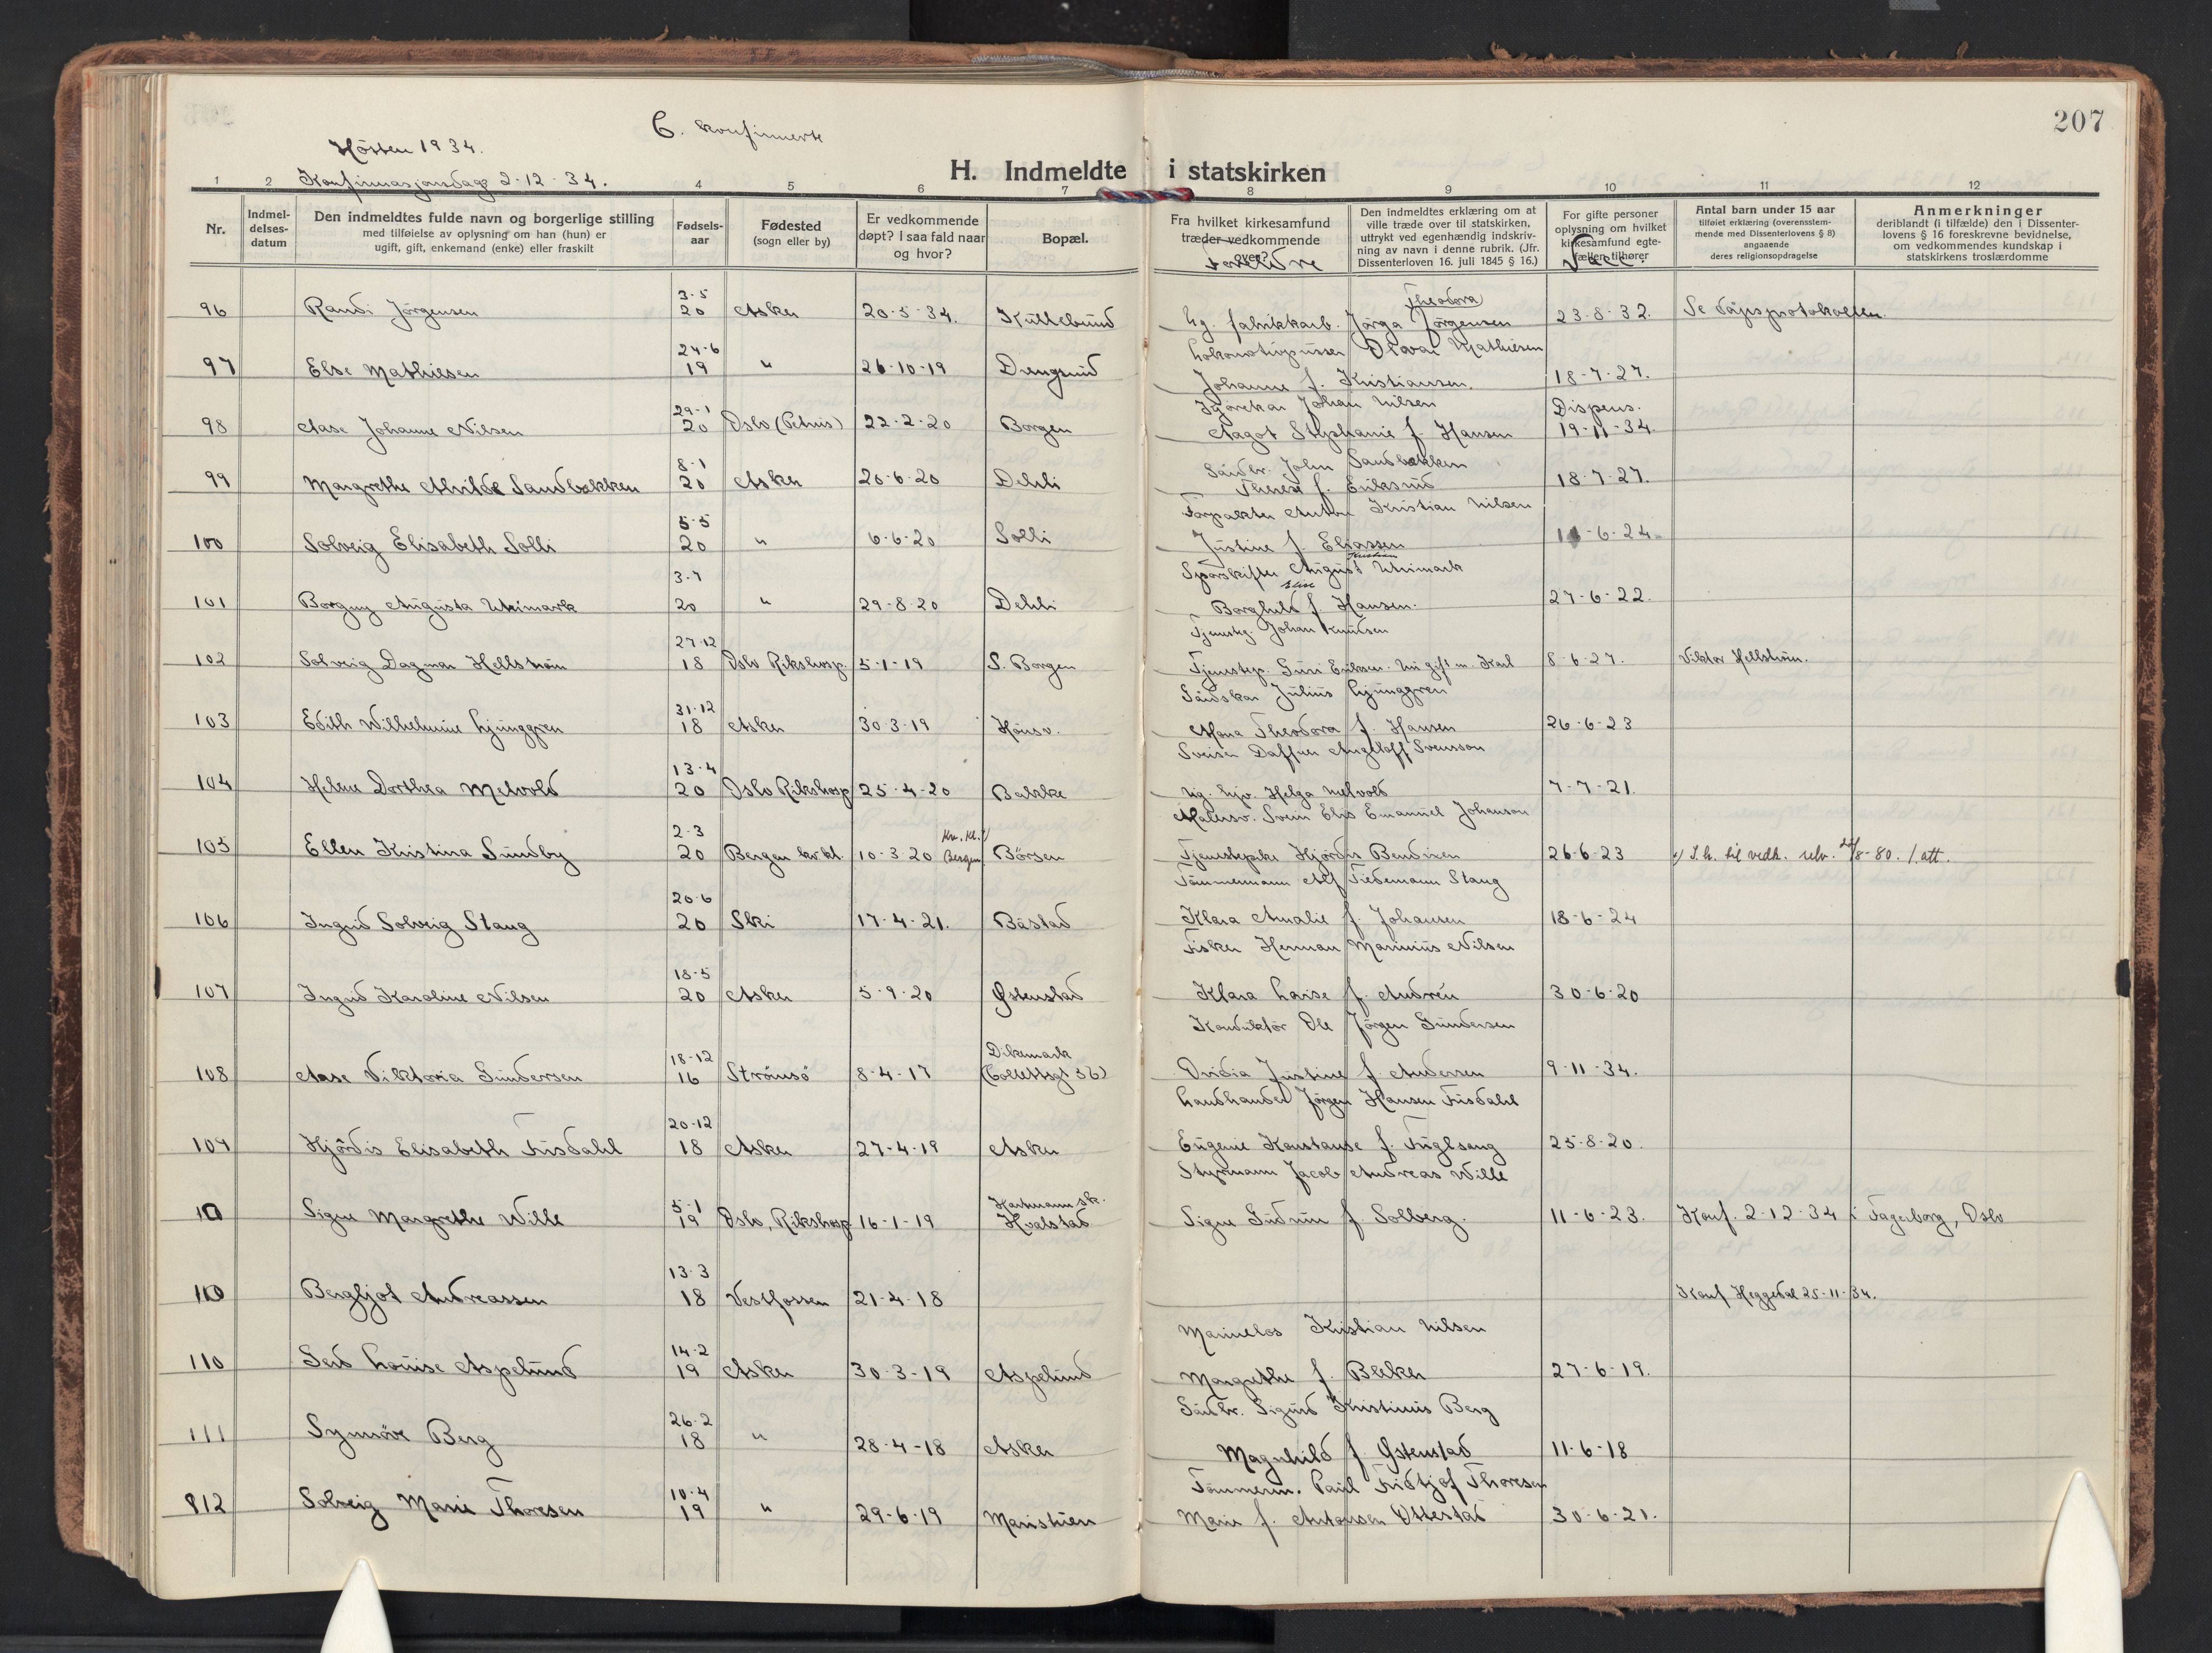 207
C. konfirmerte
Hösten 1934.
Konfirmasjonsdag 2-12-34.
H. Indmeldte i statskirken
1 2 4 5 6 7 8 9 10 11 12
Nr.
Indmel-
delses-
datum
Den indmeldtes fulde navn og borgerlige stilling
med tilføielse av oplysning om han (hun) er
ugift, gift, enkemand (enke) eller fraskilt
Fødsels-
aar
Fødested
(sogn eller by)
Er vedkommende
døpt? I saa fald naar
og hvor?
Bopæl.
Fra hvilket kirkesamfund
træder vedkommende
over?
Foreldre
Den indmeldtes erklæring om at
ville træde over til statskirken,
uttrykt ved egenhændig indskriv-
ning av navn i denne rubrik. (Jfr.
Dissenterloven 16. juli 1845 § 16.)
For gifte personer
oplysning om hvilket
kirkesamfund egte-
fællen tilhører
Vacc.
Antal barn under 15 aar
tilføiet erklæring (overensstem-
mende med Dissenterlovens § 8)
angaaende
deres religionsopdragelse
Anmerkninger
deriblandt (i tilfælde) den i Dissenter-
lovens § 16 foreskrevne bevidnelse,
om vedkommendes kundskap i
statskirkens troslærdomme
3-5 Theodora
96 Randi Jörgensen 20 Asker 20-5-34. Kullebund Ug. fabrikkarb. Jörga Jörgensen 23-8-32. Se dåpsprotokollen
24-6 Lokomotivpusser Olovar Mathiesen
97 Else Mathiesen 19 " 26-10-19 Drengsrud Johanne f. Kristiansen. 18-7-27.
29-1 Kjörekar Johan Nilsen Dispens.
98 Aase Johanne Nilsen 20 Oslo (Petrus) 22-2-20 Borgen Aagot Stephanie f. Hansen 19-11-34.
8-1 Gårdbr. John Sandbakken
99 Margrethe Alvilde Sandbakken 20 Asker 20-6-20 Dehli Therese f. Eriksrud 18-7-27.
5-5 Forpakter Anton Kristian Nilsen
100 Solveig Elisabeth Solli 20 " 6-6-20 Solli Justine f. Eliassen -6-24.
3-7 Sporskifter August Kristian Utrimark
101 Borgny Augusta Utrimark 20 " 29-8-20 Dehli Borghild Elise f. Hansen. 27-6-22.
27-12 Tjenesteg. Johan Knudsen
102 Solveig Dagmar Hellström 18 Oslo Rikshosp. 5-1-19 S. Borgen Tjenestep. Guri Eriksen. Nu gift m. Karl 8-6-27. Viktor Hellström.
31-12 Gårdskar Julius Ljunggren
103 Edith Wilhelmine Ljunggren 18 Asker 30-3-19 Hönsv. Anna Theodora f. Hansen 26-6-23
13-4 Sveiser Daffner Angeloff Svensson
104 Helene Dorthea Melvold 20 Oslo Rikshosp 25-4-20 Bakke Ug. hjv. Helga Melvold 7-7-21.
2-3 Kv. Kl. Malersv. Svein Elis Emanuel Johanson
105 Ellen Kristina Sundby 20 Bergen kv.kl. 10-3-20 Bergen Börsen Tjenestepike Hjördis Bendixen 26-6-23 S.h. til vedk. selv. 20/8-80. 1. att.
20-6 Tömmermann Alf Tidemann Stang
106 Ingrid Solveig Stang 20 Ski 17-4-21. Båstad Klara Amalie f. Johansen 18-6-24
18-5 Fisker Herman Marinius Nilsen
107 Ingrid Karoline Nilsen 20 Asker 5-9-20 Østenstad Klara Lovise f. Andrén 30-6-20
18-12 Dikemark Konduktör Ole Jörgen Gundersen
108 Aase Viktoria Gundersen 16 Strömsö 8-4-17 (Collettsgt 56) Ovidia Justine f. Andersen 9-11-34.
20-12 Landhandler Jörgen Hansen Frisdahl
109 Hjördis Elisabeth Frisdahl 18 Asker 27-4-19 Asker Eugenie Konstanse f. Fuglsang 25-8-20.
5-1 Hartmann sk. Styrmann Jacob Andreas Wille
10 Signe Margrethe Wille 19 Oslo, Rikshosp 16-1-19 Hvalstad Signe Gudrun f. Solberg. 11-6-23. Konf. 2-12-34 i Fagerborg, Oslo
13-3
110 Bergljot Andreassen 18 Vestfossen 21-4-18 Konf Heggedal 25-11-34.
14-2 Marinelos Kristian Nilsen
110 Gerd Louise Aspelund 19 Asker 30-3-19 Aspelund Margrethe f. Bleker 27-6-19.
26-2 Gårdbr. Sigurd Kristinus Berg
111 Synnöve Berg 18 " 28-4-18 Asker Magnhild f. Østenstad 11-6-18
10-4 Tömmerm. Paul Fridtjof Thoresen
812 Solveig Marie Thoresen 19 " 29-6-19 Maristuen Marie f. Antonsen Ottestad 30-6-21.